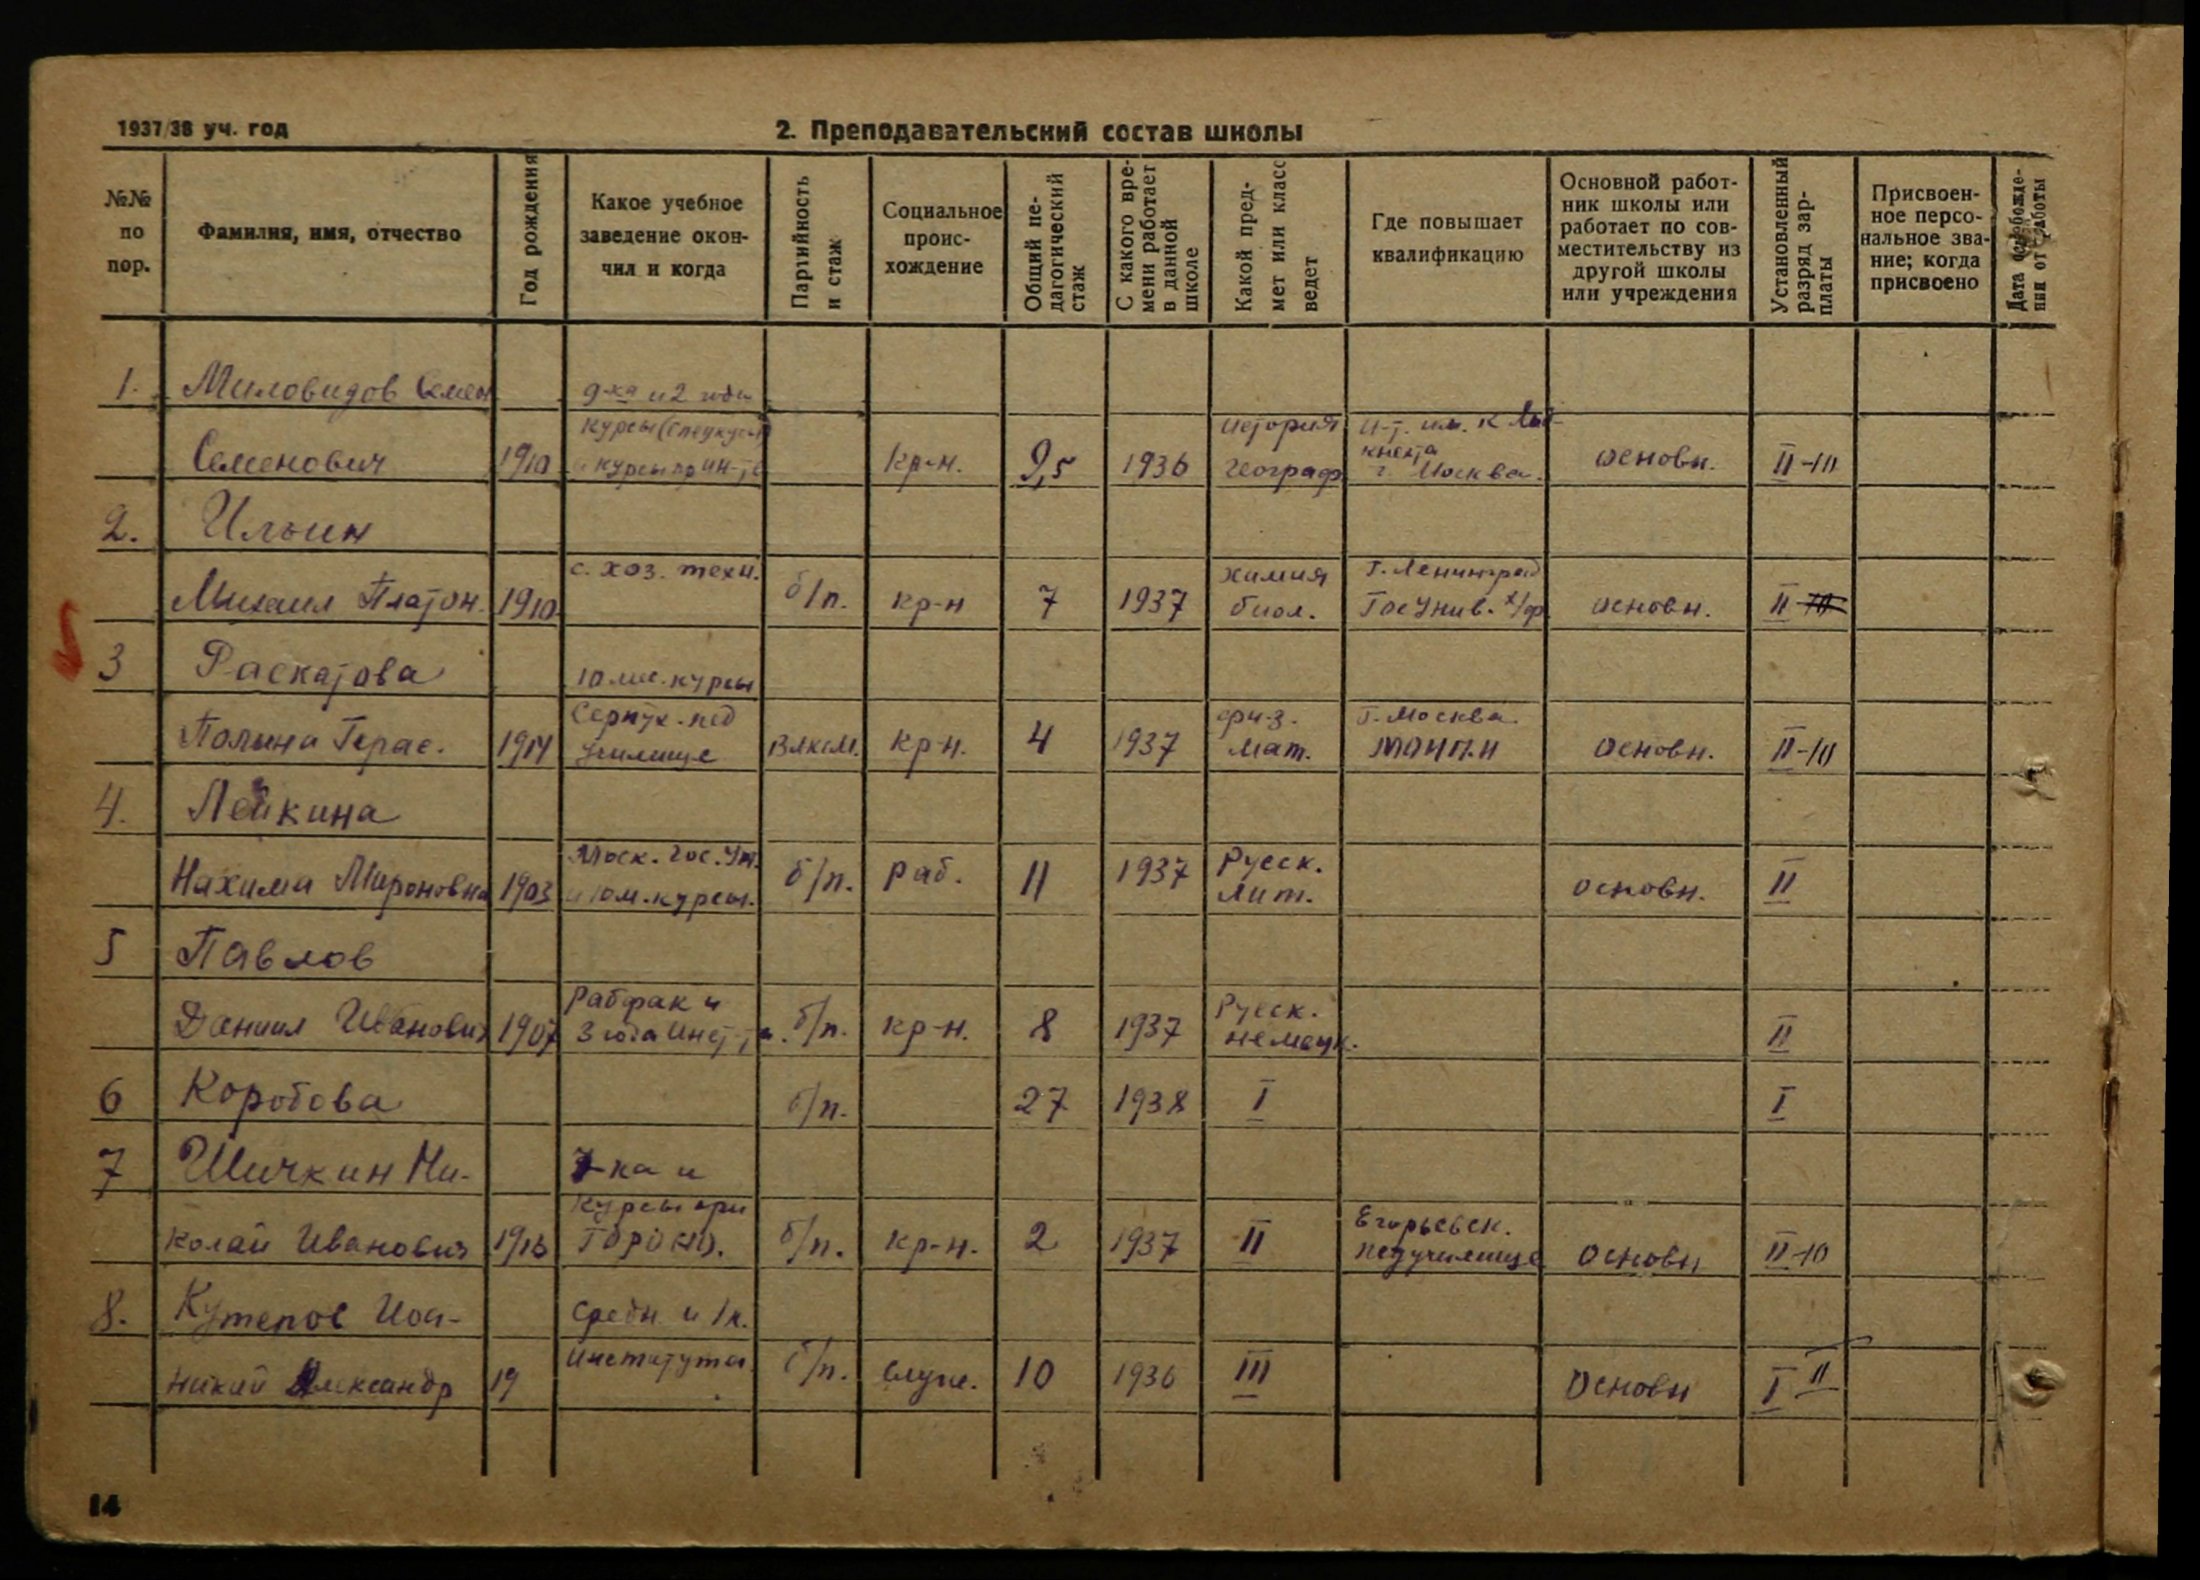 1937/38 уч. год
2. Преподавательский состав школы
№№ по пор.
Фамилия, имя, отчество
Год рождения
Какое учебное заведение окон-чил и когда
Партийность и стаж
Социальное проис-хождение
Общий пе-дагогический стаж
С какого вре-мени работает в данной школе
Какой пред-мет или класс ведет
Где повышает квалификацию
Основной работ-ник школы или работает по сов-местительству из другой школы или учреждения
Установленный разряд зар-платы
Присвоен-ное персо-нальное зва-ние; когда присвоено
Дата освобожде-нии от работы
1. Миловидов Семен 9-ка и 2 года
курсы история и-т. им. К Либ-
Семенович 1910 и курсы при ин-те кр-н. 9,5 1936 географ кнехта г. Москва. основн. II-10
2. Ильин
с. хоз. техн. химия г. Ленинград
Михаил Платон. 1910 б/п. кр-н 7 1937 биол. Гос Унив. основн. II
3 Раскатова 10 мес. курсы
Серпух. пед физ. г. Москва
Полина Герас. 1914 училище влксм. кр-н. 4 1937 мат. МОИП.И основн. II-10
4. Лейкина
Моск. гос. Русск.
Нахима Мироновна 1903 и 10 м. курсы. б/п. раб. 11 1937 лит. основн. II
5 Павлов
Рабфак и Русск.
Даниил Иванович 1907 3 года инст-та. б/п. кр-н. 8 1937 немецк. II
6 Коробова б/п. 27 1938 I I
7 Шичкин Ни- 7-ка и
курсы при Егорьевск.
колай Иванович 1913 ГорОНО. б/п. кр-н. 2 1937 II педучилище основн II-10
8. Кутепов Иоа- средн. и 1 к.
института
никий Александр 19 б/п. служ. 10 1936 III основн I II
14